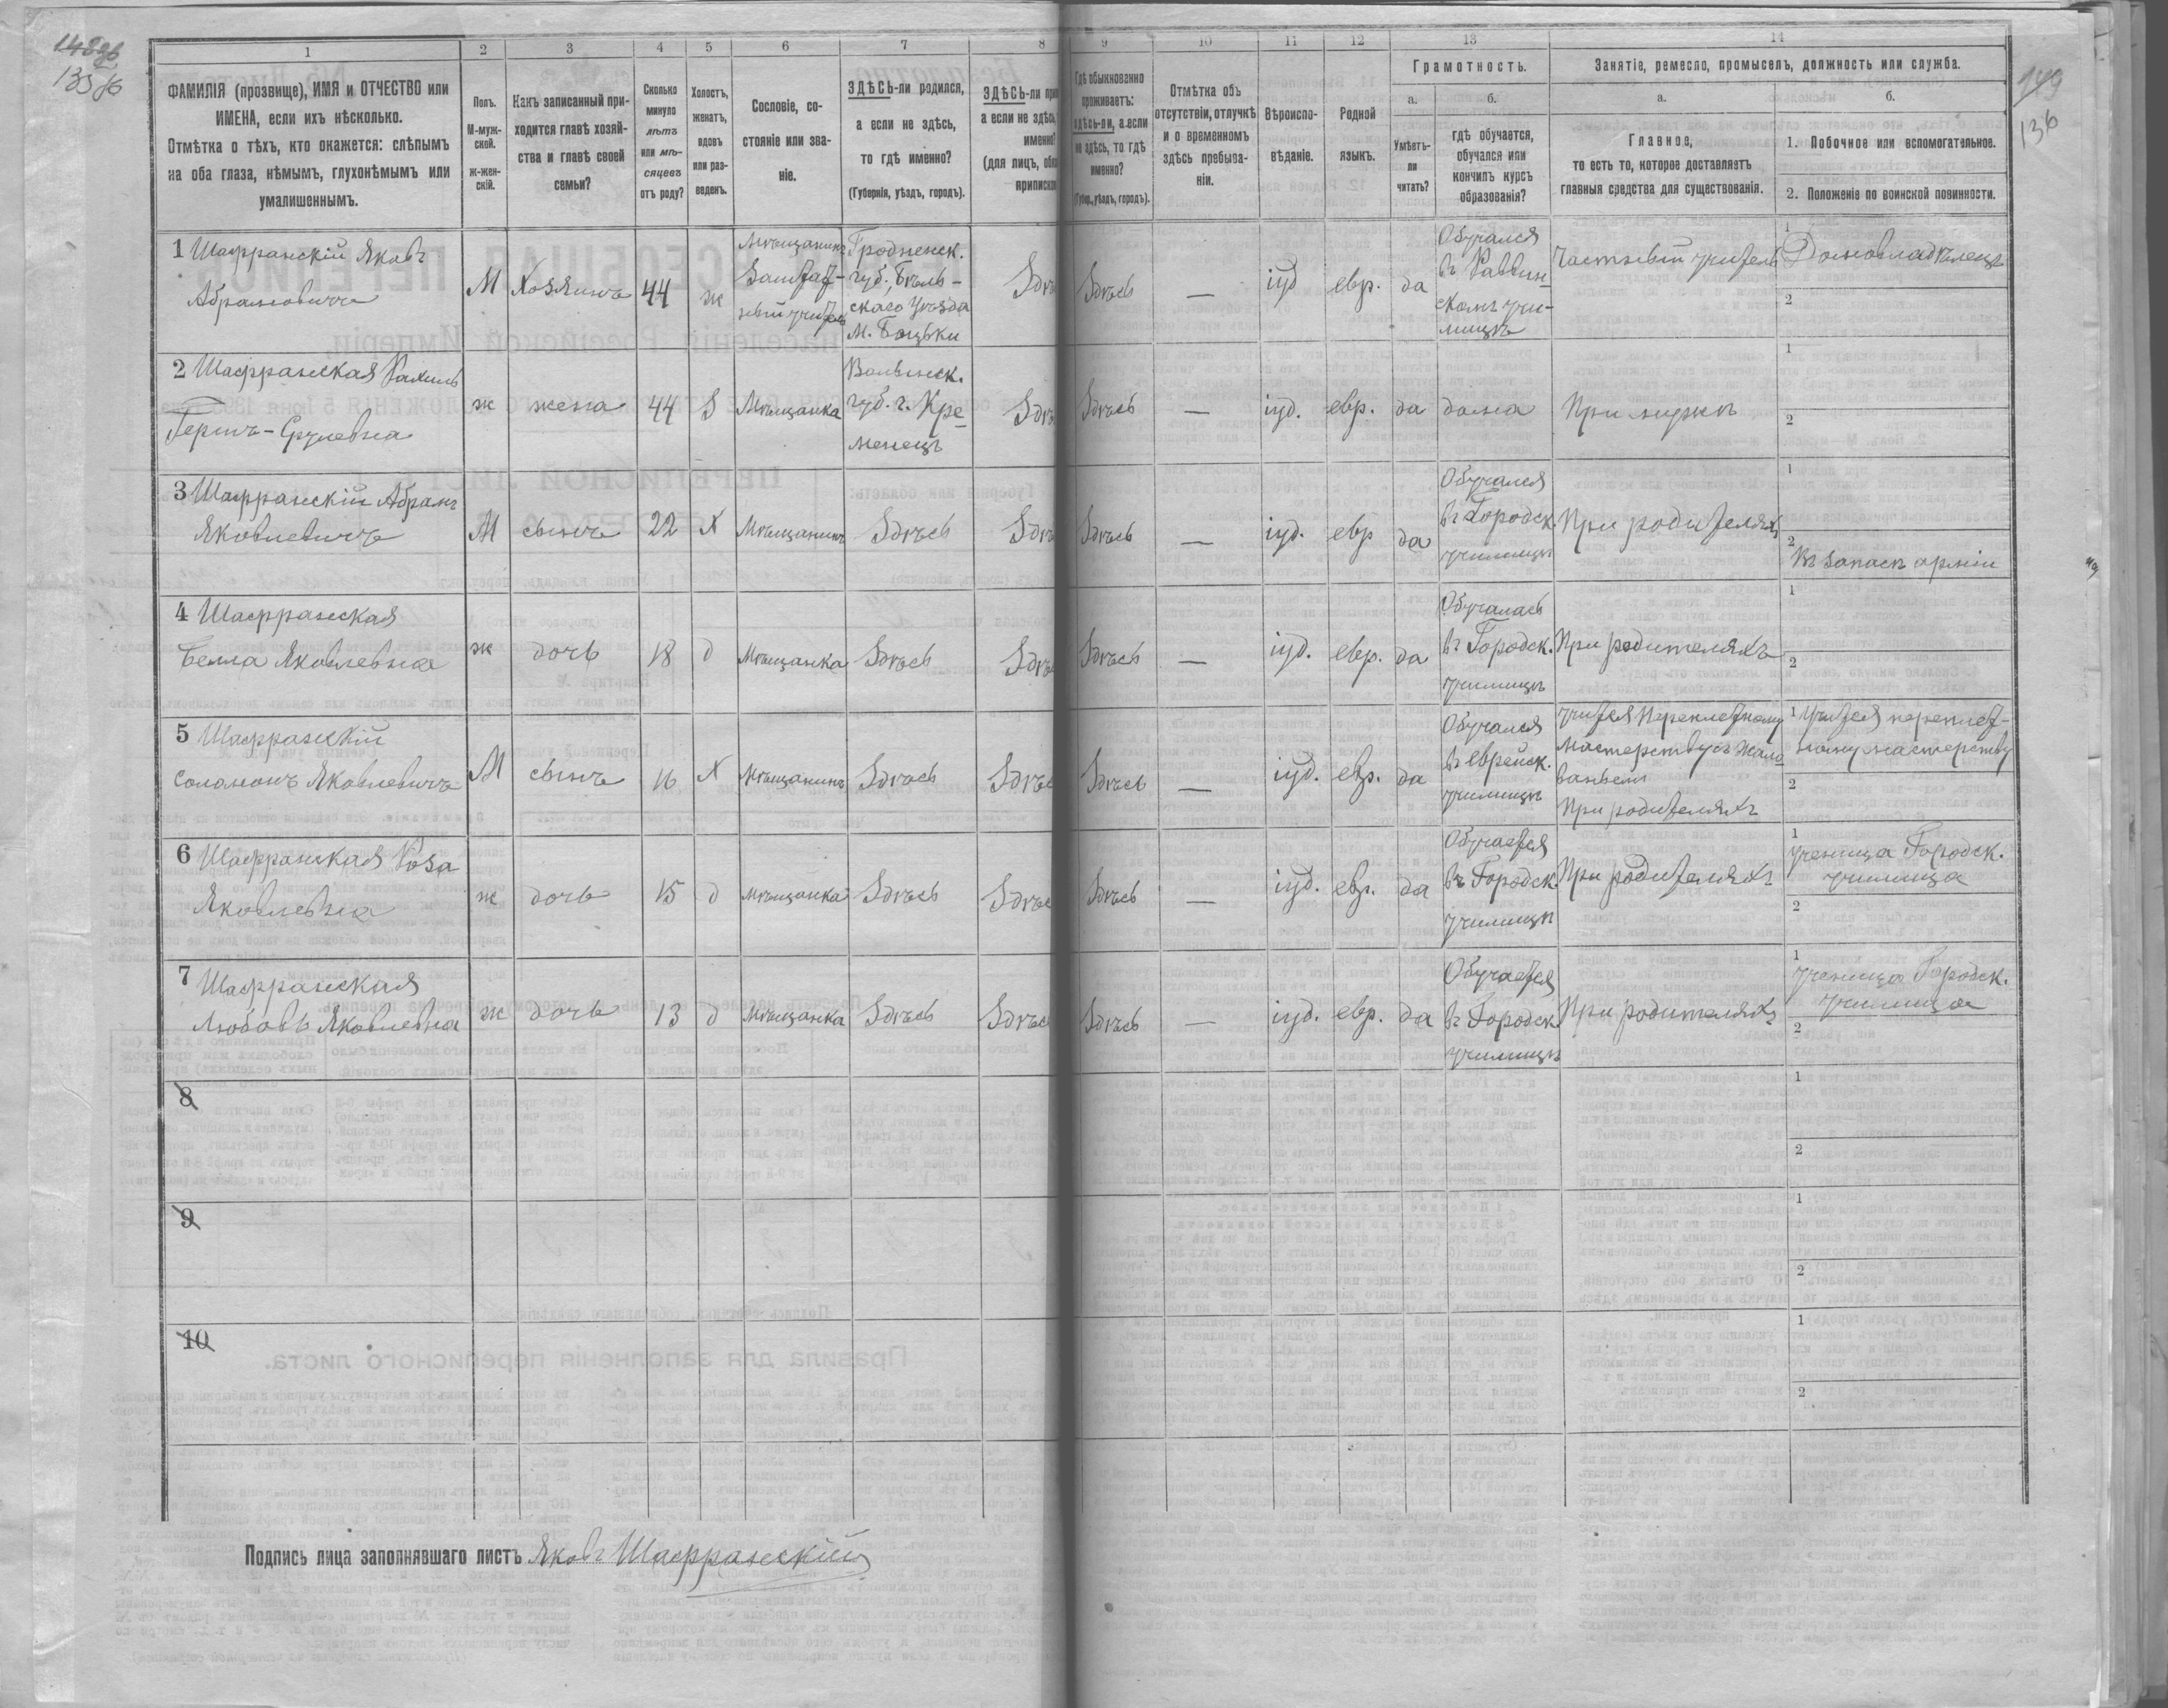 148об
135об
149
136
1
2
3
4
5
6
7
8
9
10
11
12
13
14
ФАМИЛІЯ (прозвище), ИМЯ и ОТЧЕСТВО или
ИМЕНА, если ихъ нѣсколько.
Отмѣтка о тѣхъ, кто окажется: слѣпымъ
на оба глаза, нѣмымъ, глухонѣмымъ или
умалишеннымъ.
Полъ.
М-муж-
ской.
ж-жен-
скій.
Какъ записанный при-
ходится главѣ хозяй-
ства и главѣ своей
семьи?
Сколько
минуло
лѣтъ
или мѣ-
сяцевъ
отъ роду?
Холостъ,
женатъ,
вдовъ
или раз-
веденъ.
Сословіе, со-
стояніе или зва-
ніе.
ЗДѢСЬ-ли родился,
а если не здѣсь,
то гдѣ именно?
(Губернія, уѣздъ, городъ).
ЗДѢСЬ-ли
а если не здѣсь,
именно?
(для лицъ,
Гдѣ обыкновенно
проживаетъ:
здѣсь-ли, а если
не здѣсь, то гдѣ
именно?
(Губер., уѣздъ, городъ).
Отмѣтка объ
отсутствіи, отлучкѣ
и о временномъ
здѣсь пребыва-
ніи.
Вѣроиспо-
вѣданіе.
Родной
языкъ.
Грамотность.
а.
Умѣетъ-
ли
читать?
б.
гдѣ обучается,
обучался или
кончилъ курсъ
образованія?
Занятіе, ремесло, промыселъ, должность или служба.
а.
Главное,
то есть то, которое доставляетъ
главныя средства для существованія.
б.
1. Побочное или вспомогательное.
2. Положеніе по воинской повинности.
1 Шафранскій Яковъ
Абрамовичъ
М
Хозяинъ
44
ж
Мѣщанинъ
Заштат-
ный учитель
Гродненск.
губ., Бѣль-
скаго уѣзда
М. Боцьки
Здѣ
Здѣсь
—
іуд
евр.
да
Обучался
въ Раввин-
скомъ учи-
лищѣ
Частный учитель
1
Домовладѣлецъ
2
2 Шафранская Рахиль
Гершъ-Срулевна
ж
жена
44
З
Мѣщанка
Волынск.
губ. г. Кре-
менецъ
Здѣ
Здѣсь
—
іуд.
евр.
да
дома
При мужѣ
1
2
3 Шафранскій Абрамъ
Яковлевичъ
М
сынъ
22
Х
Мѣщанинъ
Здѣсь
Здѣ
Здѣсь
—
іуд.
евр
да
Обучался
въ Городск.
училищѣ
При родителяхъ
1
2
Въ запасѣ арміи
4 Шафранская
Белла Яковлевна
ж
дочь
18
д
Мѣщанка
Здѣсь
Здѣ
Здѣсь
—
іуд.
евр.
да
Обучалась
въ Городск.
училищѣ
При родителяхъ
1
2
5 Шафранскій
Соломонъ Яковлевичъ
М
сынъ
16
Х
Мѣщанинъ
Здѣсь
Здѣс
Здѣсь
—
іуд.
евр.
да
Обучался
въ еврейск.
училищѣ
Учится переплетному
мастерству съ жало
ваньем
При родителяхъ
1 Учится переплет-
ному мастерству
2
6 Шафранская Роза
Яковлевна
ж
дочь
15
д
Мѣщанка
Здѣсь
Здѣс
Здѣсь
—
іуд.
евр.
да
Обучается
въ Городск.
училищѣ
При родителяхъ
1
ученица Городск.
училища
2
7 Шафранская
Любовь Яковлевна
ж
дочь
13
д
Мѣщанка
Здѣсь
Здѣс
Здѣсь
—
іуд.
евр.
да
Обучается
въ Городск.
училищѣ
При родителяхъ
1
ученица Городск.
училища
2
8
1
2
9
1
2
10
1
2
Подпись лица заполнявшаго листъ Яковъ Шафранскій